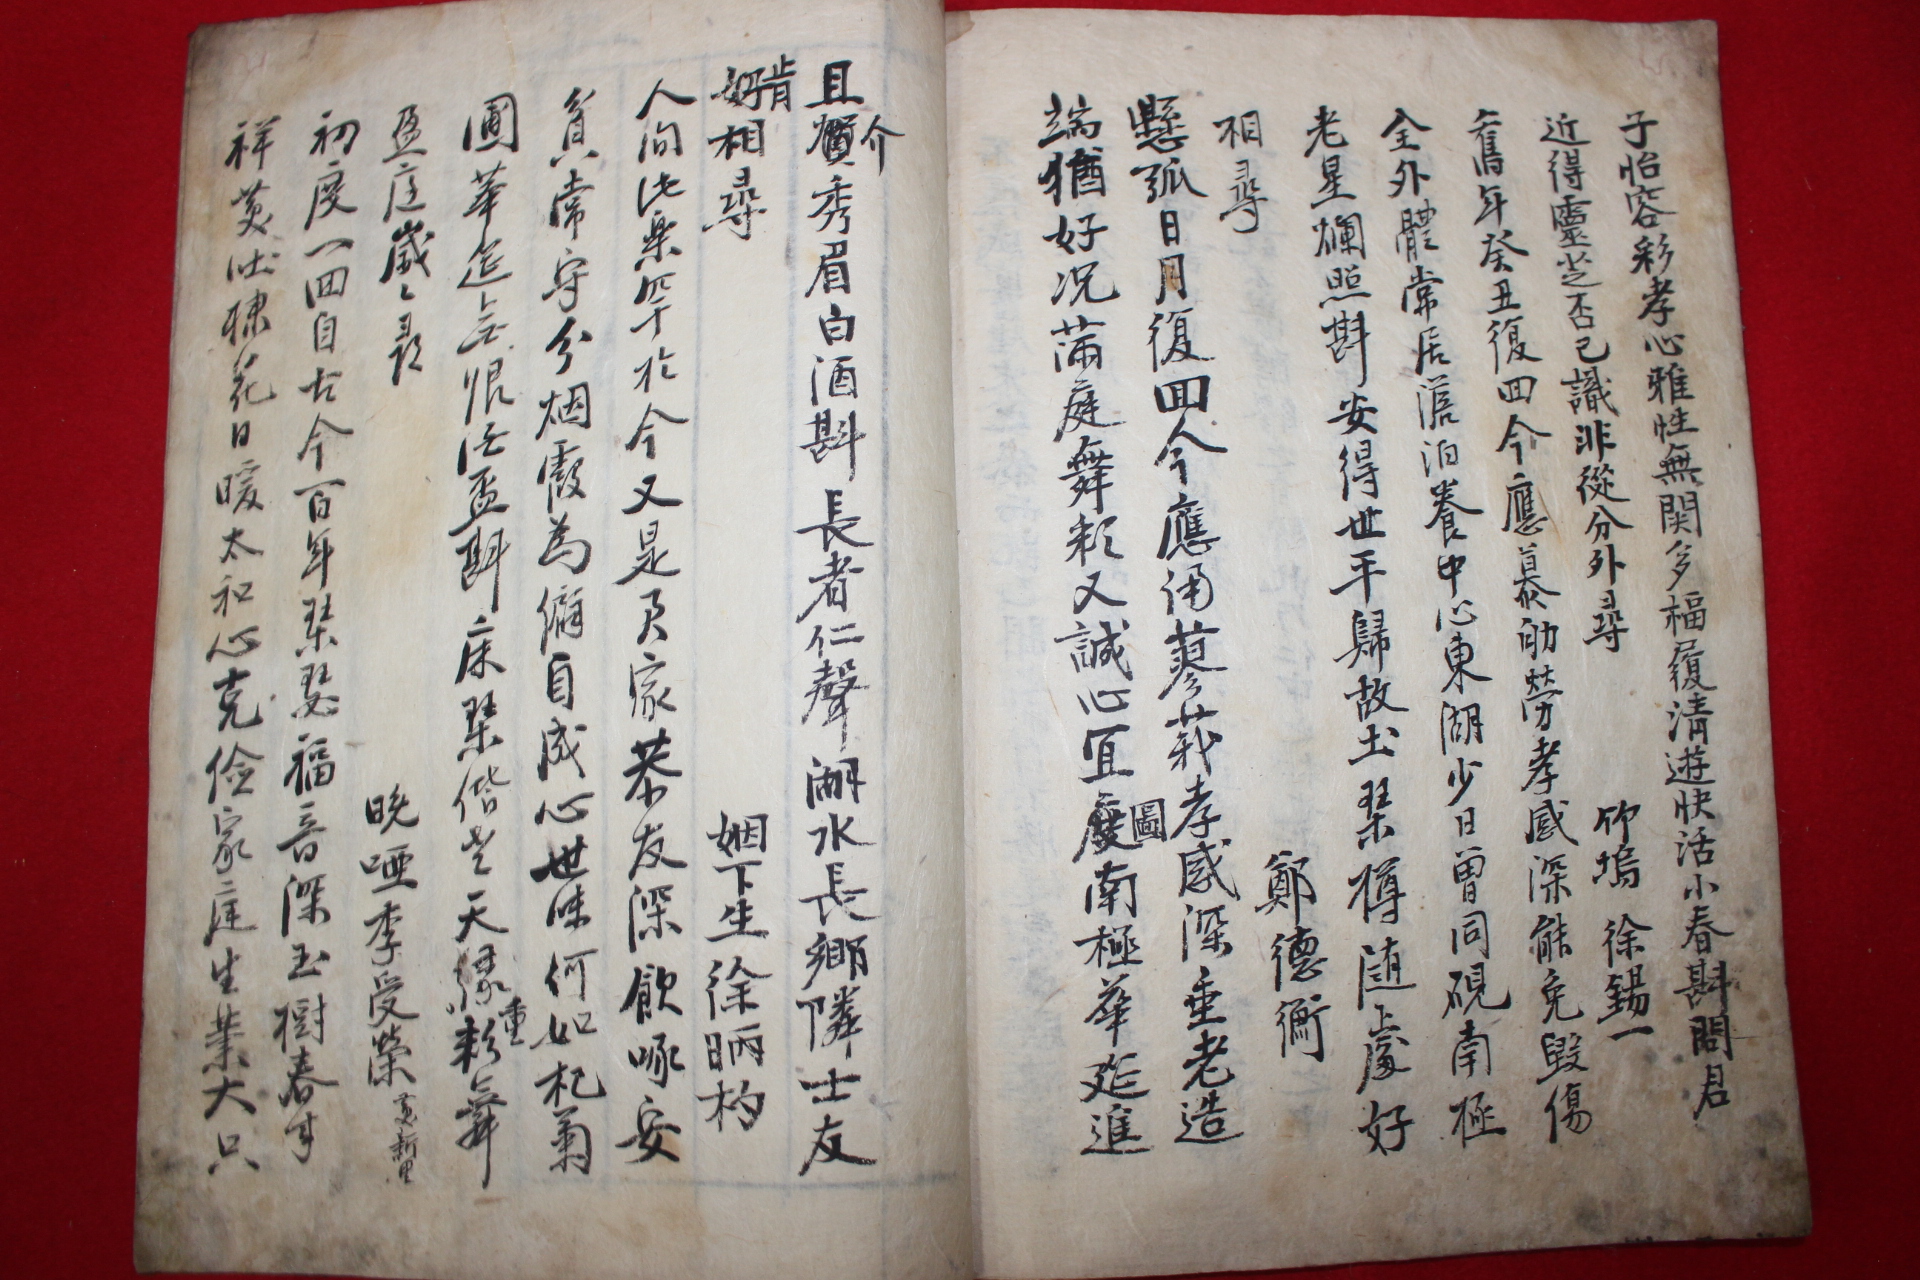 子怡容彩孝心雅性無関多福履清遊快活小春斟問君
近得靈芝否已識非從分外尋
竹塢 徐錫一
舊年癸丑復回今應慕劬勞孝感深能免毀傷
全外體常居澹泊養中心東湖少日曾同硯南極
老星爛照斟安得世平歸故土琴樽随處好
相尋
鄭德衡
懸弧日月復回今應誦蓼莪孝感深垂老造
端猶好况滿庭舞彩又誠心宜慶圖南極華延進
且賀介秀眉白酒斟長者仁聲湖水長鄉隣士友
好肯相尋
姻下生徐昞杓
人间此樂罕於今又是君家恭友深飲啄安
貧常守分烟霞為癖自成心世味何如杞菊
圃華筵上無恨任盃斟床琴偕老天緣重彩舞
盈庭歲々尋
晚啞李受榮
初度一回自古今百年琴瑟福音深玉樹春
祥黄棣花日暖太和心克儉家庭生業大只